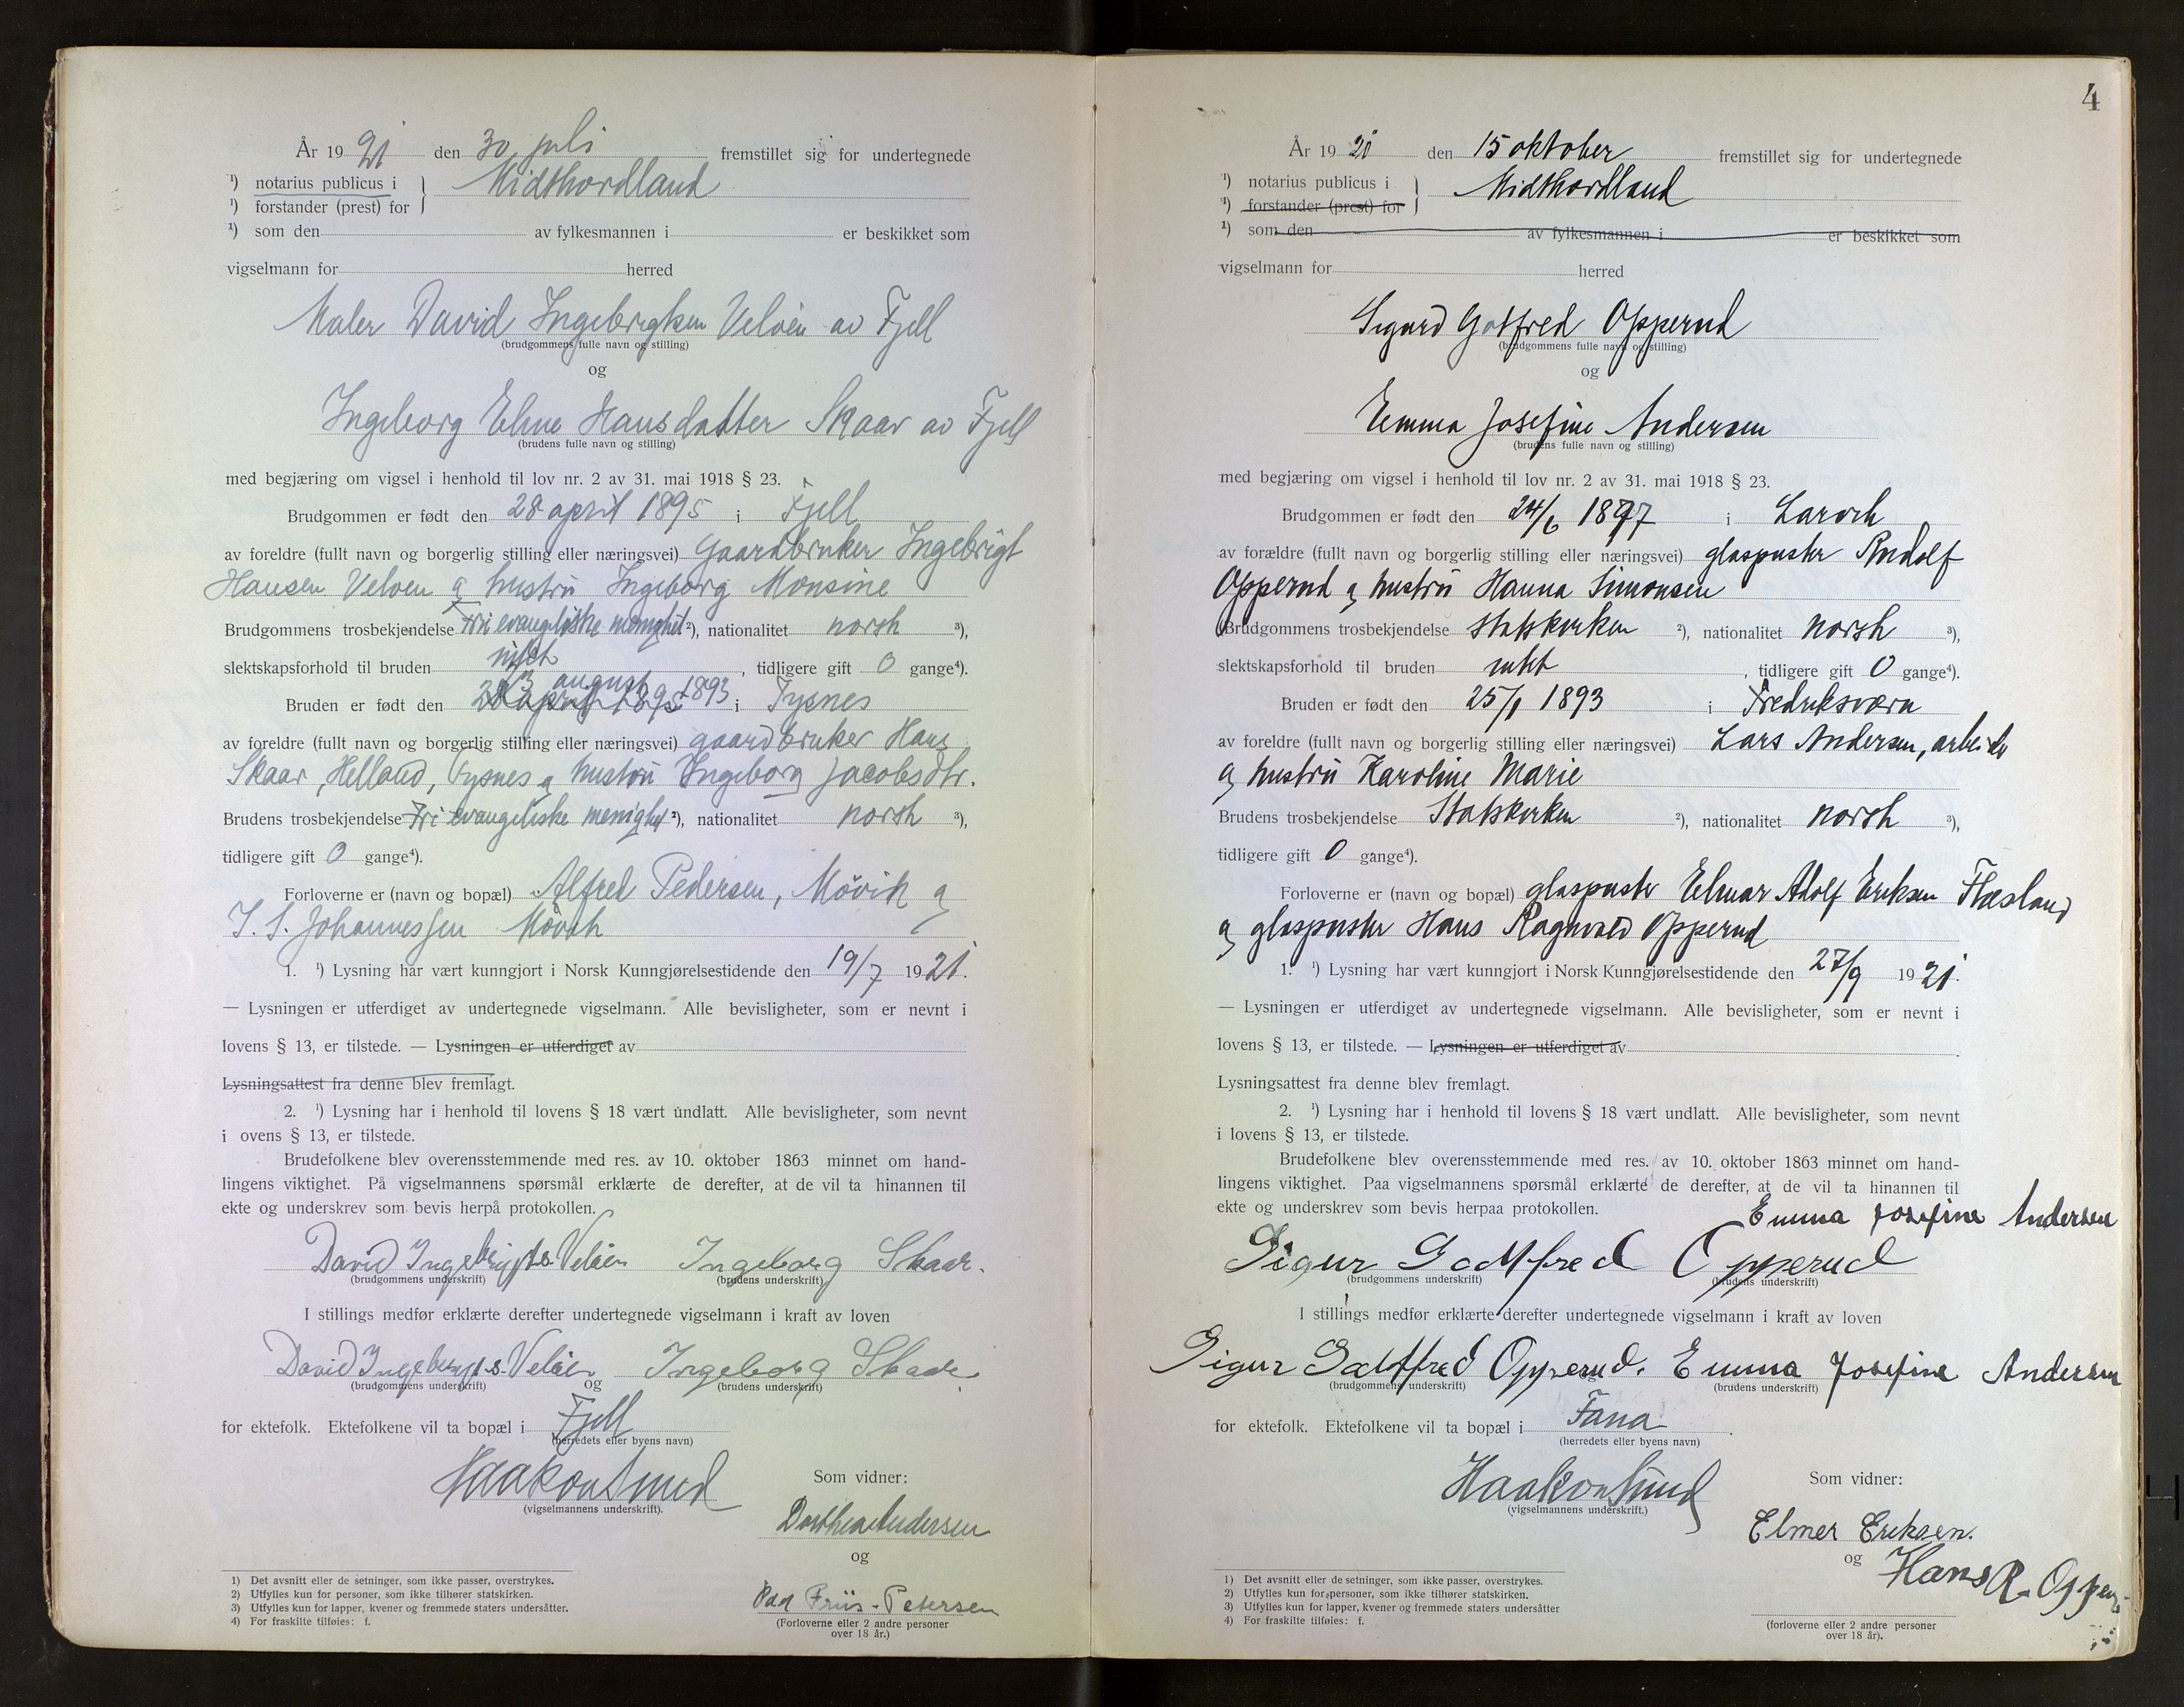 År 19 21 den 30 juli fremstillet sig for undertegnede
¹) notarius publicus i } Midthordland
¹) forstander (prest) for
¹) som den av fylkesmannen i er beskikket som
vigselmann for herred
Maler David Ingebrigtsen Veløen av Fjell
(brudgommens fulle navn og stilling)
og
Ingeborg Eline Hansdatter Skaar av Fjell
(brudens fulle navn og stilling)
med begjæring om vigsel i henhold til lov nr. 2 av 31. mai 1918 § 23.
Brudgommen er født den 28 april 1895 i Fjell
av foreldre (fullt navn og borgerlig stilling eller næringsvei) Gaardbruker Ingebrigt
Hansen Veløen og hustru Ingeborg Monsine
Brudgommens trosbekjendelse Fri evangeliske menighet ²), nationalitet norsk ³),
slektskapsforhold til bruden intet, tidligere gift 0 gange⁴).
august 1893
Bruden er født den 28 april 1895 i Tysnes
av foreldre (fullt navn og borgerlig stilling eller næringsvei) gaardbruker Hans
Skaar, Helland, Tysnes og hustru Ingeborg Jacobsdtr.
Brudens trosbekjendelse Fri evangeliske menighet ²), nationalitet norsk ³),
tidligere gift 0 gange⁴).
Forloverne er (navn og bopæl) Alfred Pedersen, Møvik og
J. S. Johannessen Møvik
1. ¹) Lysning har vært kunngjort i Norsk Kunngjørelsestidende den 19/7 1921.
— Lysningen er utferdiget av undertegnede vigselmann. Alle bevisligheter, som er nevnt i
lovens § 13, er tilstede. — Lysningen er utferdiget av
Lysningsattest fra denne blev fremlagt.
2. ¹) Lysning har i henhold til lovens § 18 vært undlatt. Alle bevisligheter, som nevnt
i ovens § 13, er tilstede.
Brudefolkene blev overensstemmende med res. av 10. oktober 1863 minnet om hand-
lingens viktighet. På vigselmannens spørsmål erklærte de derefter, at de vil ta hinannen til
ekte og underskrev som bevis herpå protokollen.
David Ingebrigts. Veløen Ingeborg Skaar.
(brudgommens underskrift) (brudens underskrift)
I stillings medfør erklærte derefter undertegnede vigselmann i kraft av loven
David Ingebrigts. Veløen og Ingeborg Skaar
(brudgommens underskrift) (brudens underskrift)
for ektefolk. Ektefolkene vil ta bopæl i Fjell
(herredets eller byens navn)
Haakon Smed
(vigselmannens underskrift).
Som vidner:
Dorthea Andersen
og
Friis-Petersen
(Forloverne eller 2 andre personer
over 18 år.)
1) Det avsnitt eller de setninger, som ikke passer, overstrykes.
2) Utfylles kun for personer, som ikke tilhører statskirken.
3) Utfylles kun for lapper, kvener og fremmede staters undersåtter.
4) For fraskilte tilføies: f.
4
År 19 21 den 15 oktober fremstillet sig for undertegnede
¹) notarius publicus i } Midthordland
¹) forstander (prest) for
¹) som den av fylkesmannen i er beskikket som
vigselmann for herred
Sigurd Gotfred Opperud
(brudgommens fulle navn og stilling)
og
Emma Josefine Andersen
(brudens fulle navn og stilling)
med begjæring om vigsel i henhold til lov nr. 2 av 31. mai 1918 § 23.
Brudgommen er født den 24/6 1897 i Larvik
av forældre (fullt navn og borgerlig stilling eller næringsvei) glaspuster Rudolf
Opperud og hustru Hanna Simonsen
Brudgommens trosbekjendelse statskirken ²), nationalitet norsk ³),
slektskapsforhold til bruden intet, tidligere gift 0 gange⁴).
Bruden er født den 25/1 1893 i Fredriksværn
av foreldre (fullt navn og borgerlig stilling eller næringsvei) Lars Andersen, arbeider
og hustru Karoline Marie
Brudens trosbekjendelse Statskirken ²), nationalitet norsk ³),
tidligere gift 0 gange⁴).
Forloverne er (navn og bopæl) glaspuster Elmar Adolf Eriksen Flesland
og glaspuster Hans Ragnvald Opperud
1. ¹) Lysning har vært kunngjort i Norsk Kunngjørelsestidende den 27/9 1921.
— Lysningen er utferdiget av undertegnede vigselmann. Alle bevisligheter, som er nevnt i
lovens § 13, er tilstede. — Lysningen er utferdiget av
Lysningsattest fra denne blev fremlagt.
2. ¹) Lysning har i henhold til lovens § 18 vært undlatt. Alle bevisligheter, som nevnt
i lovens § 13, er tilstede.
Brudefolkene blev overensstemmende med res. av 10. oktober 1863 minnet om hand-
lingens viktighet. Paa vigselmannens spørsmål erklærte de derefter, at de vil ta hinannen til
ekte og underskrev som bevis herpaa protokollen.
Emma Josefine Andersen
Sigur Gottfred Opperud
(brudgommens underskrift) (brudens underskrift)
I stillings medfør erklærte derefter undertegnede vigselmann i kraft av loven
Sigur Gottfred Opperud. Emma Josefine Andersen
(brudgommens underskrift) (brudens underskrift)
for ektefolk. Ektefolkene vil ta bopæl i Fana
(herredets eller byens navn)
Haakon Smed
(vigselmannens underskrift.)
Som vidner:
Elmer Eriksen.
og
Hans R. Opperud
(forloverne eller 2 andre personer
over 18 år).
1) Det avsnitt eller de setninger, som ikke passer, overstrykes.
2) Utfylles kun for personer, som ikke tilhører statskirken.
3) Utfylles kun for lapper, kvener og fremmede staters undersåtter
4) For fraskilte tilføies: f.